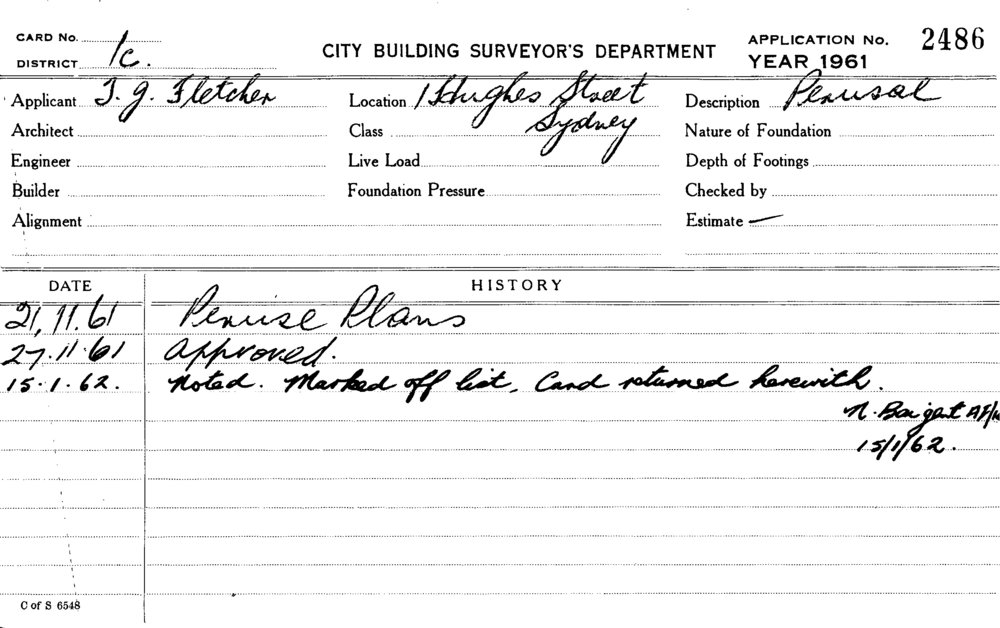 CARD No.
DISTRICT 1c.
CITY BUILDING SURVEYOR'S DEPARTMENT
APPLICATION No. 2486
YEAR 1961
Applicant T. G. Fletcher
Location 1 Hughes Street
Sydney
Description Perusal
Architect
Class
Nature of Foundation
Engineer
Live Load
Depth of Footings
Builder
Foundation Pressure
Checked by
Alignment
Estimate —
DATE HISTORY
21.11.61 Peruse Plans
27.11.61 Approved.
15.1.62. Noted. Marked off list, Card returned herewith.
N. Baigent
15/1/62.
C of S 6548